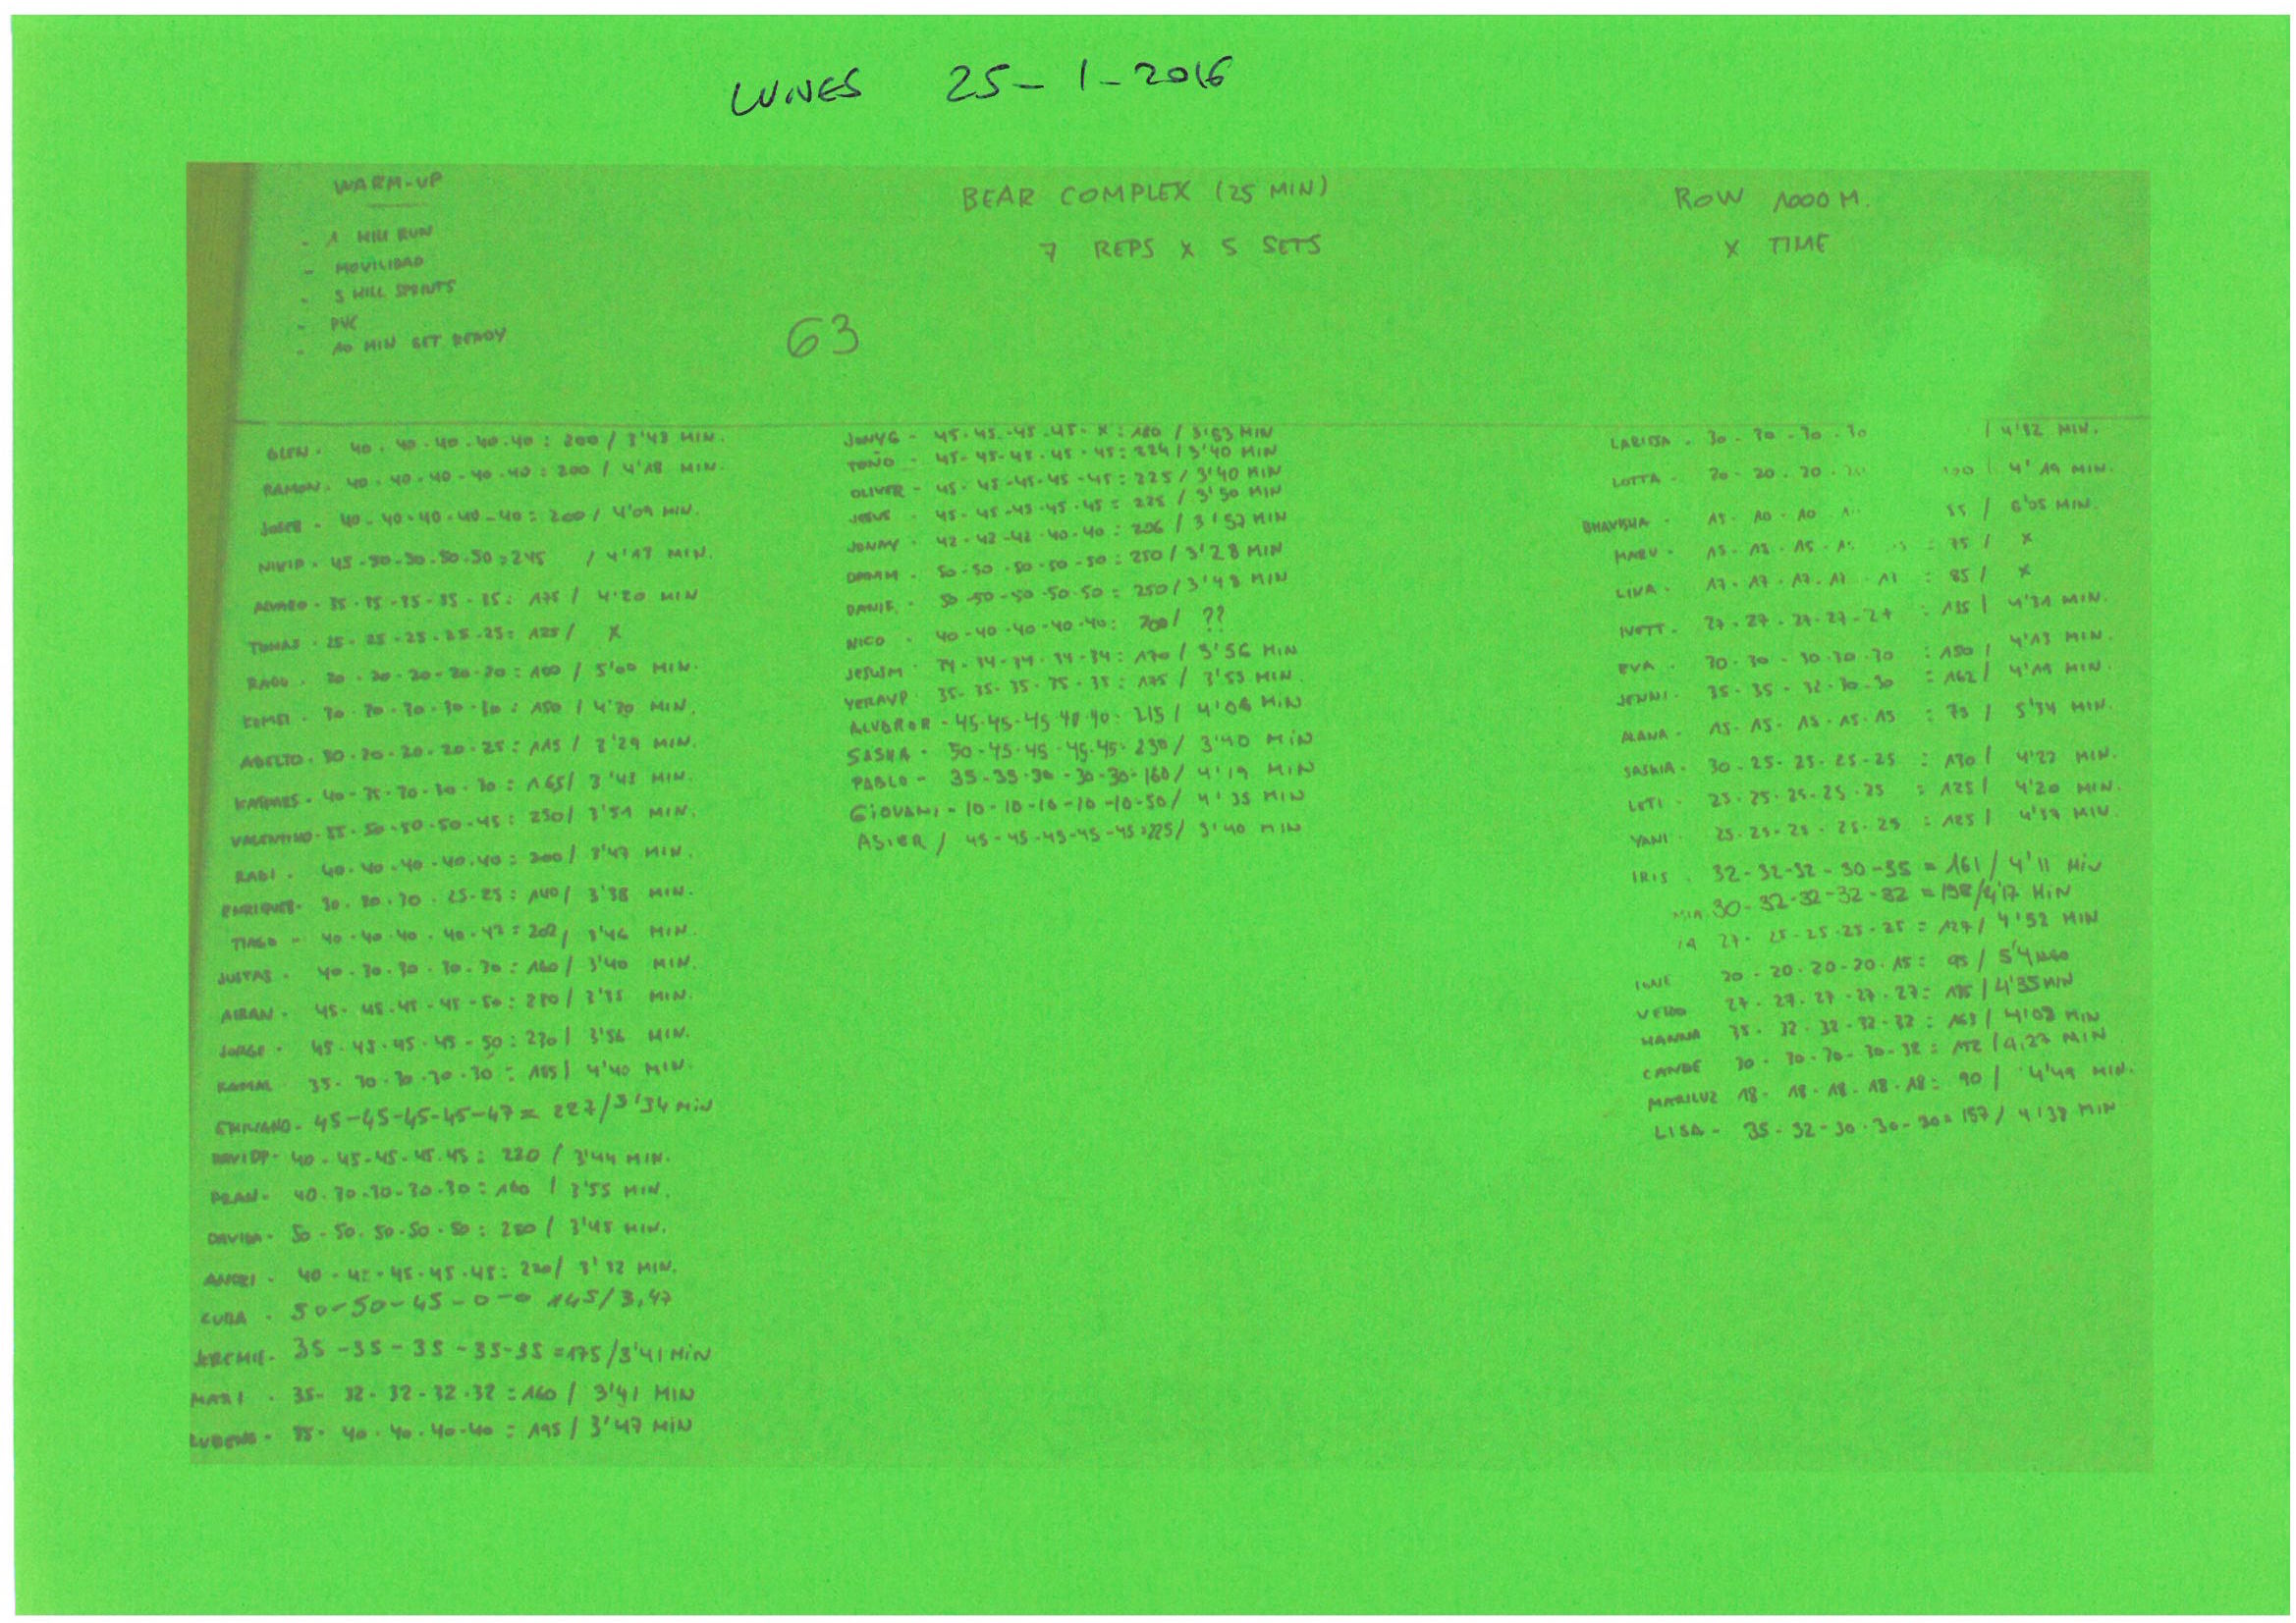 LUNES 25-1-2016
WARM-UP
- 1 HILL RUN
- MOVILIDAD
- 5 HILL SPRINTS
- PVC
- 10 MIN GET READY
BEAR COMPLEX (25 MIN)
7 REPS X 5 SETS
63
ROW 1000 M.
X TIME
GLEN - 40-40-40-40-40: 200 / 3'43 MIN.
RAMON - 40-40-40-40-40: 200 / 4'18 MIN.
40-40-40-40-40: 200 / 4'09 MIN.
45-50-50-50-50: 245 / 4'17 MIN.
ALVARO - 35-35-35-35-35: 175 / 4'20 MIN
TOMAS - 25-25-25-25-25: 125 / X
RAUL - 20-20-20-20-20: 100 / 5'00 MIN.
30-30-30-30-30: 150 / 4'30 MIN.
30-20-20-20-25: 115 / 3'29 MIN.
40-35-30-30-30: 165 / 3'43 MIN.
VALENTINO - 55-50-50-50-45: 250 / 3'51 MIN.
RADI - 40-40-40-40-40: 200 / 3'47 MIN.
ENRIQUE - 30-30-30-25-25: 140 / 3'38 MIN.
TIAGO - 40-40-40-40-42: 202 / 3'46 MIN.
JUSTAS - 40-30-30-30-30: 160 / 3'40 MIN.
AIRAN - 45-45-45-45-50: 230 / 3'35 MIN.
JORGE - 45-45-45-45-50: 230 / 3'56 MIN.
KAMAL 35-30-30-30-30: 155 / 4'40 MIN.
EMILIANO - 45-45-45-45-47 = 227 / 3'34 MiN
DAVIDP - 40-45-45-45-45: 220 / 3'44 MIN.
FRAN - 40-30-30-30-30: 160 / 3'55 MIN.
50-50-50-50-50: 250 / 3'45 MIN.
ANDRI - 40-45-45-45-45: 220 / 3'32 MIN.
CUBA - 50-50-45-0-0 145 / 3,47
JEREMIE - 35-35-35-35-35 = 175 / 3'41 MiN
MARI - 35-32-32-32-32: 160 / 3'41 MIN
35-40-40-40-40: 195 / 3'47 MIN
JONYG - 45-45-45-45-X: 180 / 3'53 MIN
TOÑO - 45-45-45-45-45: 224 / 3'40 MIN
OLIVER - 45-45-45-45-45: 225 / 3'40 MIN
JESUS - 45-45-45-45-45: 225 / 3'50 MIN
JONAY - 42-42-42-40-40: 206 / 3'57 MIN
50-50-50-50-50: 250 / 3'28 MIN
50-50-50-50-50: 250 / 3'48 MIN
NICO - 40-40-40-40-40: 200 / ??
JESUSM - 34-34-34-34-34: 170 / 3'56 MIN
YERAYP - 35-35-35-35-35: 175 / 3'53 MIN.
ALVAROR - 45-45-45-40-40: 215 / 4'06 MiN
SASHA - 50-45-45-45-45: 230 / 3'40 MiN
PABLO - 35-35-30-30-30-160 / 4'19 MIN
GiOVANi - 10-10-10-10-10-50 / 4'35 MiN
ASiER / 45-45-45-45-45:225 / 3'40 MIN
LARISSA - 30-30-30-30 / 4'32 MIN.
LOTTA - 20-20-20-20 100 / 4'19 MIN.
BHAVISHA - 15-10-10 55 / 6'05 MIN.
MARU - 15-15-15-15 : 75 / X
LINA - 17-17-17-17-17 : 85 / X
IVETT - 27-27-27-27-27 : 135 / 4'31 MIN.
EVA - 30-30-30-30-30 : 150 / 4'13 MIN.
JENNI - 35-35-32-30-30 : 162 / 4'11 MIN.
ALANA - 15-15-15-15-15 : 75 / 5'34 MIN.
SASKIA - 30-25-25-25-25 : 130 / 4'22 MIN.
LETI - 25-25-25-25-25 : 125 / 4'20 MIN.
YANI - 25-25-25-25-25 : 125 / 4'37 MIN.
IRIS - 32-32-32-30-35 = 161 / 4'11 MiN
30-32-32-32-32 = 158 / 4'17 MiN
27-25-25-25-25 = 127 / 4'52 MIN
20-20-20-20-15: 95 /
VERO 27-27-27-27-27: 135 / 4'35 MIN
HANNA 35-32-32-32-32: 163 / 4'08 MIN
CANDE 30-30-30-30-32: 152 / 4,27 MIN
MARILUZ 18-18-18-18-18: 90 / 4'49 MIN.
LISA - 35-32-30-30-30 = 157 / 4'38 MIN